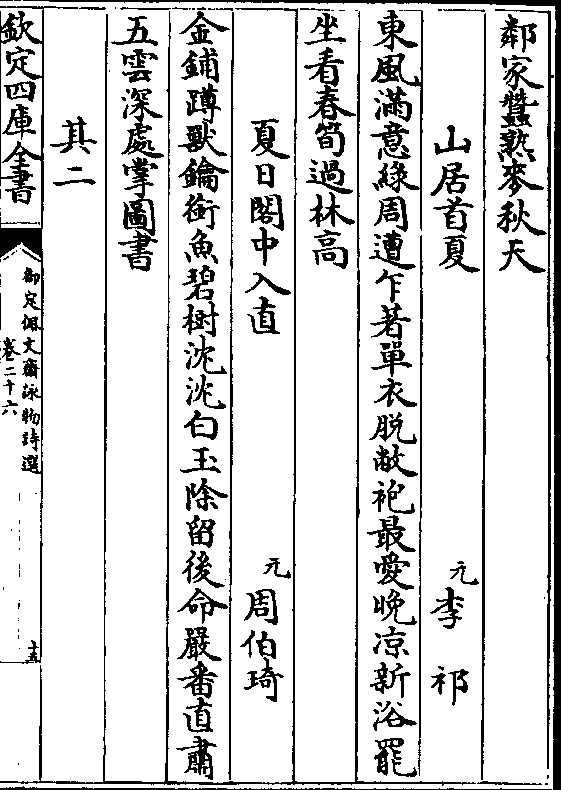 鄰家蠶熟麥秋天
山居首夏 元李祁
東風滿意緑周遭乍著單衣脱敝袍最愛晚凉新浴罷
坐看春筍過林高
夏日閣中入直 元周伯琦
金鋪蹲獸鑰銜魚碧樹沈沈白玉除留後命嚴番直肅
五雲深處掌圖書
其二
欽定四庫全書
御定佩文齋詠物詩選
卷二十六
十五